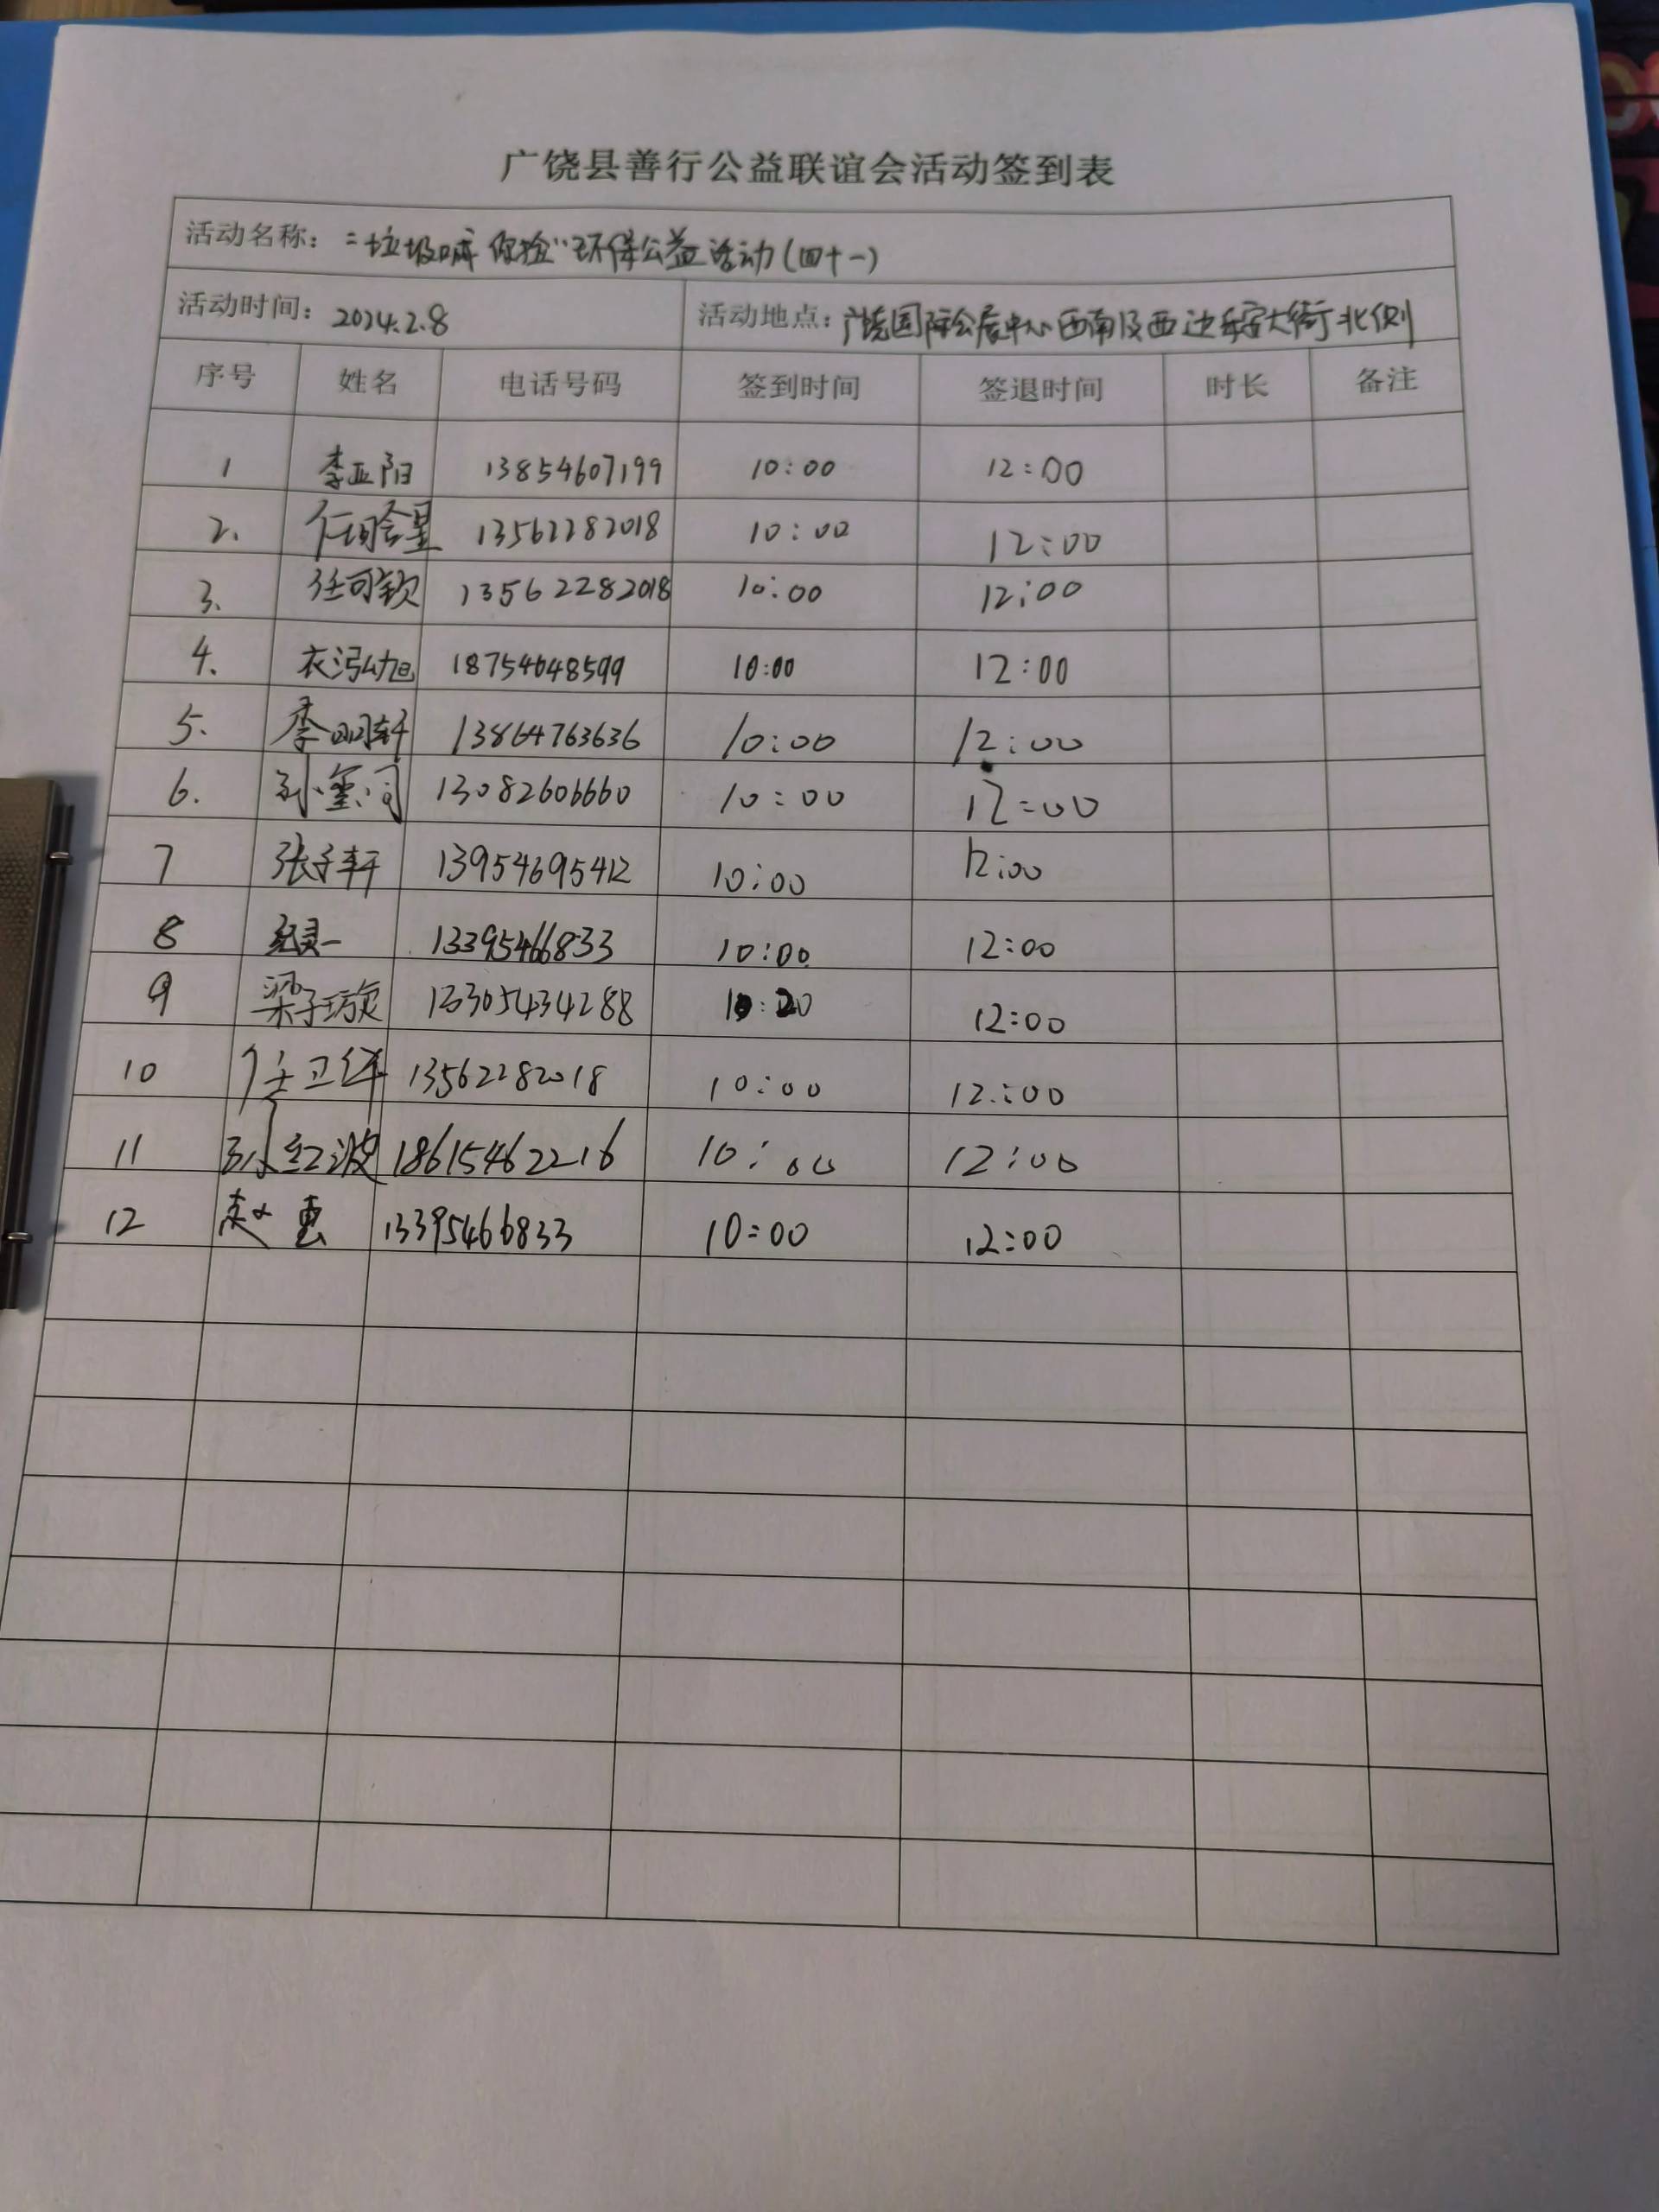 广饶县善行公益联谊会活动签到表
活动名称：“垃圾嘛 你捡”环保公益活动(四十一)
活动时间：2024.2.8 活动地点：广饶国际会展中心西南及西边乐安大街北侧
序号 姓名 电话号码 签到时间 签退时间 时长 备注
1 李亚阳 13854607199 10:00 12:00
2. 13562282018 10:00 12:00
3. 任可钦 13562282018 10:00 12:00
4. 衣泓旭 18754648599 10:00 12:00
5. 李明轩 13864763636 10:00 12:00
6. 13082606660 10:00 12:00
7 张子轩 13954695412 10:00 12:00
8 纪灵一 13395466833 10:00 12:00
9 梁子璇 13305434288 10:20 12:00
10 任卫华 13562282018 10:00 12:00
11 孙红波 18615462216 10:00 12:00
12 赵惠 13395466833 10:00 12:00